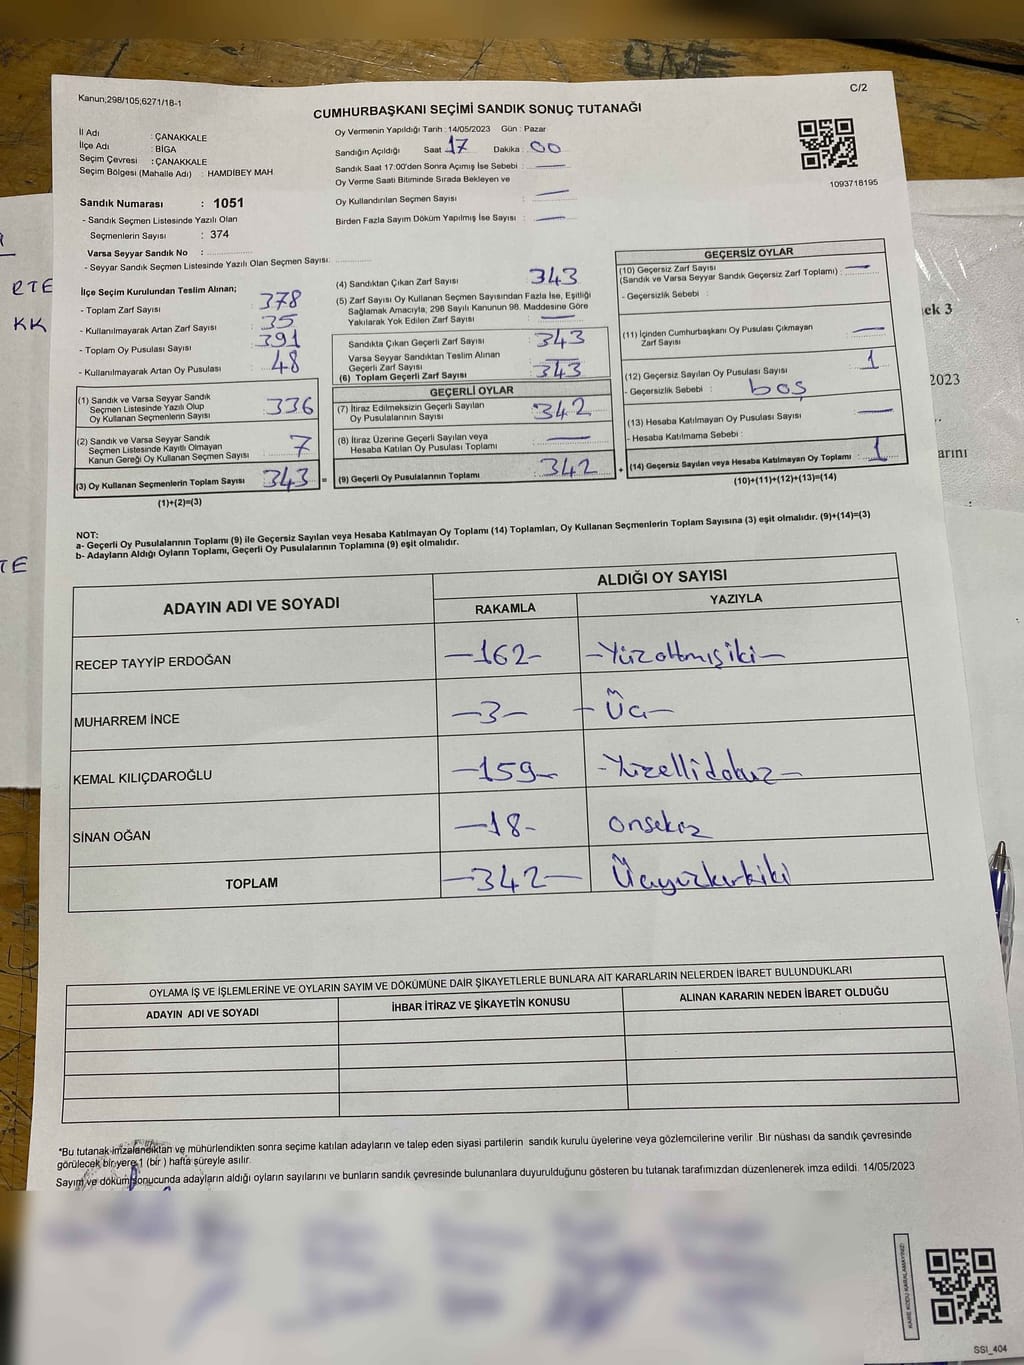 Kanun;298/105;6271/18-1
C/2
CUMHURBAŞKANI SEÇİMİ SANDIK SONUÇ TUTANAĞI
İl Adı : ÇANAKKALE
İlçe Adı : BİGA
Seçim Çevresi : ÇANAKKALE
Seçim Bölgesi (Mahalle Adı) : HAMDİBEY MAH
Oy Vermenin Yapıldığı Tarih : 14/05/2023 Gün : Pazar
Sandığın Açıldığı Saat 17 Dakika : 00
Sandık Saat 17:00'den Sonra Açımış İse Sebebi :
Oy Verme Saati Bitiminde Sırada Bekleyen ve
Oy Kullandırılan Seçmen Sayısı :
Birden Fazla Sayım Döküm Yapılmış İse Sayısı :
1093718195
Sandık Numarası : 1051
- Sandık Seçmen Listesinde Yazılı Olan
Seçmenlerin Sayısı : 374
Varsa Seyyar Sandık No :
- Seyyar Sandık Seçmen Listesinde Yazılı Olan Seçmen Sayısı:
İlçe Seçim Kurulundan Teslim Alınan;
- Toplam Zarf Sayısı : 378
- Kullanılmayarak Artan Zarf Sayısı : 35
- Toplam Oy Pusulası Sayısı : 391
- Kullanılmayarak Artan Oy Pusulası : 48
(1) Sandık ve Varsa Seyyar Sandık
Seçmen Listesinde Yazılı Olup
Oy Kullanan Seçmenlerin Sayısı : 336
(2) Sandık ve Varsa Seyyar Sandık
Seçmen Listesinde Kayıtlı Olmayan
Kanun Gereği Oy Kullanan Seçmen Sayısı : 7
(3) Oy Kullanan Seçmenlerin Toplam Sayısı : 343 =
(1)+(2)=(3)
(4) Sandıktan Çıkan Zarf Sayısı : 343
(5) Zarf Sayısı Oy Kullanan Seçmen Sayısından Fazla İse, Eşitliği
Sağlamak Amacıyla, 298 Sayılı Kanunun 98. Maddesine Göre
Yakılarak Yok Edilen Zarf Sayısı :
Sandıkta Çıkan Geçerli Zarf Sayısı : 343
Varsa Seyyar Sandıktan Teslim Alınan
Geçerli Zarf Sayısı :
(6) Toplam Geçerli Zarf Sayısı : 343
GEÇERLİ OYLAR
(7) İtiraz Edilmeksizin Geçerli Sayılan
Oy Pusulalarının Sayısı : 342
(8) İtiraz Üzerine Geçerli Sayılan veya
Hesaba Katılan Oy Pusulası Toplamı :
(9) Geçerli Oy Pusulalarının Toplamı : 342 +
GEÇERSİZ OYLAR
(10) Geçersiz Zarf Sayısı
(Sandık ve Varsa Seyyar Sandık Geçersiz Zarf Toplamı) :
- Geçersizlik Sebebi :
(11) İçinden Cumhurbaşkanı Oy Pusulası Çıkmayan
Zarf Sayısı :
(12) Geçersiz Sayılan Oy Pusulası Sayısı : 1
- Geçersizlik Sebebi : boş
(13) Hesaba Katılmayan Oy Pusulası Sayısı :
- Hesaba Katılmama Sebebi :
(14) Geçersiz Sayılan veya Hesaba Katılmayan Oy Toplamı : 1
(10)+(11)+(12)+(13)=(14)
NOT:
a- Geçerli Oy Pusulalarının Toplamı (9) ile Geçersiz Sayılan veya Hesaba Katılmayan Oy Toplamı (14) Toplamları, Oy Kullanan Seçmenlerin Toplam Sayısına (3) eşit olmalıdır. (9)+(14)=(3)
b- Adayların Aldığı Oyların Toplamı, Geçerli Oy Pusulalarının Toplamına (9) eşit olmalıdır.
ADAYIN ADI VE SOYADI
ALDIĞI OY SAYISI
RAKAMLA YAZIYLA
RECEP TAYYİP ERDOĞAN -162- -Yüzaltmışiki-
MUHARREM İNCE -3- -Üç-
KEMAL KILIÇDAROĞLU -159- -Yüzellidokuz-
SİNAN OĞAN -18- onsekiz
TOPLAM -342- Üçyüzkırkiki
OYLAMA İŞ VE İŞLEMLERİNE VE OYLARIN SAYIM VE DÖKÜMÜNE DAİR ŞİKAYETLERLE BUNLARA AİT KARARLARIN NELERDEN İBARET BULUNDUKLARI
ADAYIN ADI VE SOYADI İHBAR İTİRAZ VE ŞİKAYETİN KONUSU ALINAN KARARIN NEDEN İBARET OLDUĞU
*Bu tutanak imzalandıktan ve mühürlendikten sonra seçime katılan adayların ve talep eden siyasi partilerin sandık kurulu üyelerine veya gözlemcilerine verilir .Bir nüshası da sandık çevresinde
görülecek bir yere 1 (bir ) hafta süreyle asılır.
Sayım ve döküm sonucunda adayların aldığı oyların sayılarını ve bunların sandık çevresinde bulunanlara duyurulduğunu gösteren bu tutanak tarafımızdan düzenlenerek imza edildi. 14/05/2023
KARE KODU KARALAMAYINIZ!
SSI_404
RTE
KK
TE
ek 3
2023
arını